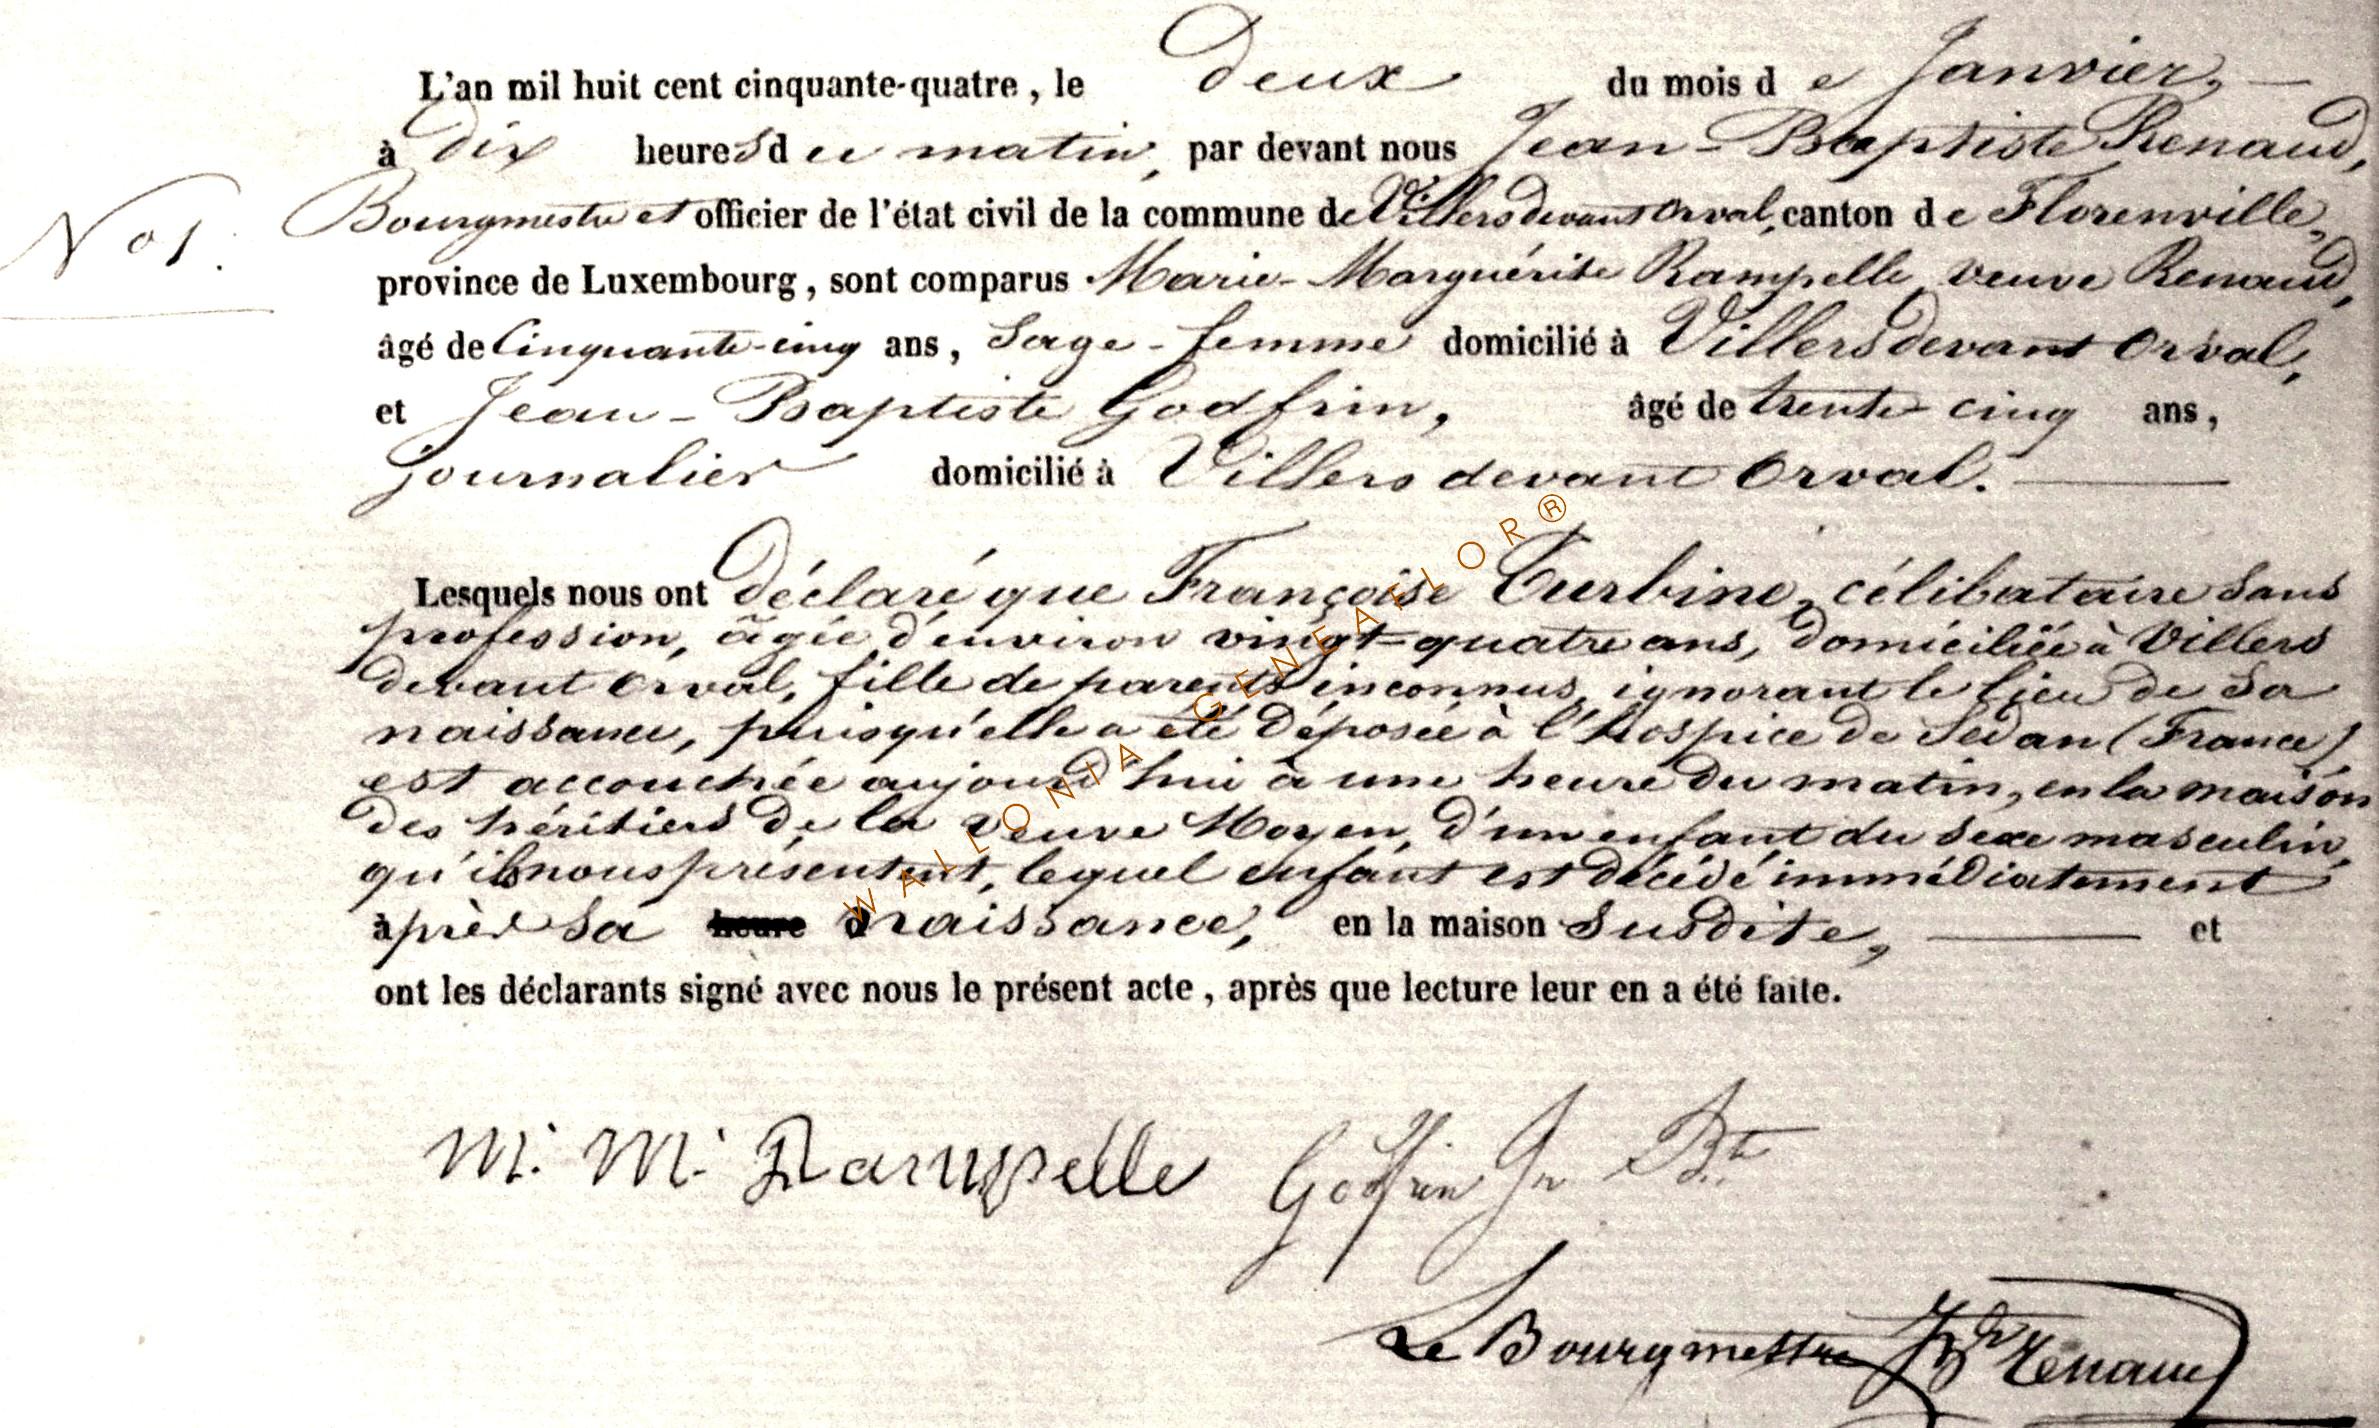 L'an mil huit cent cinquante-quatre, le deux du mois de Janvier,
à dix heures du matin, par devant nous Jean-Baptiste Renaud,
No 1.
Bourgmestre et officier de l'état civil de la commune de Villers devant Orval, canton de Florenville,
province de Luxembourg, sont comparus Marie-Marguérite Rampelle veuve Renaud,
âgé de Cinquante-cinq ans, Sage-femme domicilié à Villers devant Orval,
et Jean-Baptiste Godfrin, âgé de trente-cinq ans,
journalier domicilié à Villers devant Orval.
Lesquels nous ont déclaré que Françoise Turbine, célibataire sans
profession, âgée d'environ vingt-quatre ans, domiciliée à Villers
devant Orval, fille de parents inconnus, ignorant le lieu de sa
naissance, puisqu'elle a été déposée à l'hospice de Sedan (France)
est accouchée aujourd'hui à une heure du matin, en la maison
des héritiers de la veuve Moyen, d'un enfant du sexe masculin,
qu'ils nous présentent, lequel enfant est décédé immédiatement
après sa heure d naissance, en la maison susdite, et
ont les déclarants signé avec nous le présent acte, après que lecture leur en a été faite.
M. M. Rampelle Godfrin Jn Bte
Le Bourgmestre JBte Renaud
WALLONIA GENEAFLOR®